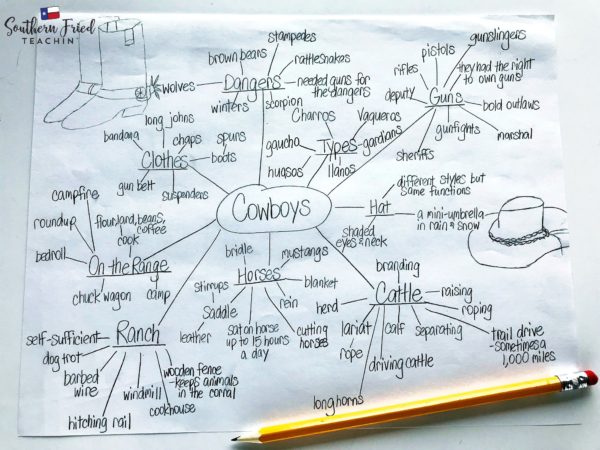 Southern Fried
TEACHIN'
stampedes
brown bears
rattlesnakes
Dangers
wolves
needed guns for
the dangers
winters
scorpion
gunslingers
pistols
they had the right
to own guns
rifles
deputy
Guns
bold outlaws
gunfights
marshal
sheriffs
long johns
bandana
chaps
spurs
Clothes
boots
gun belt
suspenders
Charros
Vaqueros
gaucho
Types
gardians
huasos
llanos
Cowboys
different styles but
same functions
Hat
a mini-umbrella
in rain & snow
shaded
eyes & neck
campfire
roundup
flour, lard, beans,
coffee
cook
bedroll
On the Range
chuck wagon
camp
bridle
mustangs
Horses
stirrups
blanket
Saddle
rein
leather
sat on horse
up to 15 hours
a day
cutting
horses
branding
Cattle
raising
herd
roping
lariat
calf
separating
trail drive
-sometimes a
1,000 miles
rope
driving cattle
longhorns
self-sufficient
Ranch
dog trot
barbed
wire
windmill
wooden fence
-keeps animals
in the corral
cookhouse
hitching rail